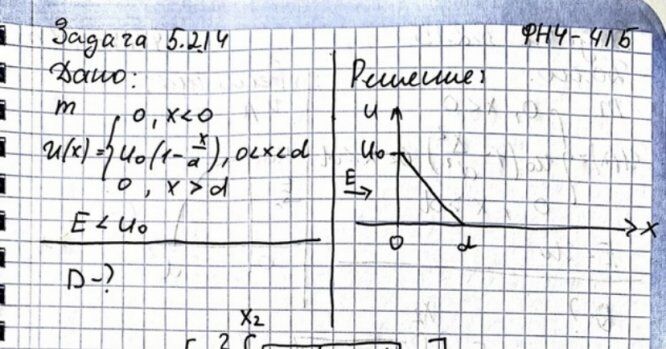 Задача 5.214
ФН4-41Б
Дано:
m
U(x) = { 0, x<0
U₀(1-x/d), 0<x<d
0, x>d
E < U₀
D-?
Решение:
U
U₀
E
0
d
x
x₂